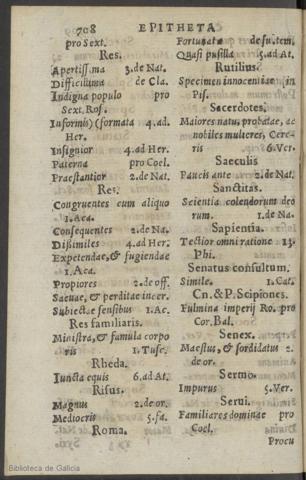 708 EPITHETA
pro Sext.
Res.
Apertissima 3. de Nat.
Difficillima de Cla.
Indigna populo pro
Sext. Ros.
Informis) (formata 4. ad.
Her.
Insignior 4. ad Her.
Paterna pro Coel.
Praestantior 2. de Nat.
Res.
Congruentes cum aliquo
1. Aca.
Consequentes 2. de Na.
Dissimiles 4. ad Her.
Expetendae, & fugiendae
1. Aca.
Propiores 2. de off.
Saeuae, & perditae in cer.
Subiectae sensibus 1. Ac.
Res familiaris.
Ministra, & famula corpo
ris 1. Tusc.
Rheda.
Iuncta equis 6. ad At.
Risus.
Magnus 2. de or.
Mediocris 5. fa.
Roma.
Fortunata de su. tem.
Quasi pusilla 5. ad At.
Rutilius
Specimen innocentiae in
Pis.
Sacerdotes.
Maiores natu, probatae, ac
nobiles mulieres, Cere-
ris 6. Ver.
Saeculis
Paucis ante 2. de Nat.
Sanctitas.
Scientia colendorum deo
rum. 1. de Na.
Sapientia.
Tectior omni ratione 13.
Phi.
Senatus consultum.
Simile. 1. Cat.
Cn. & P. Scipiones.
Fulmina imperij Ro. pro
Cor. Bal.
Senex.
Maestus, & sordidatus 2.
de or.
Sermo.
Impurus 5. Ver.
Serui.
Familiares dominae pro
Coel.
Procu
Biblioteca de Galicia